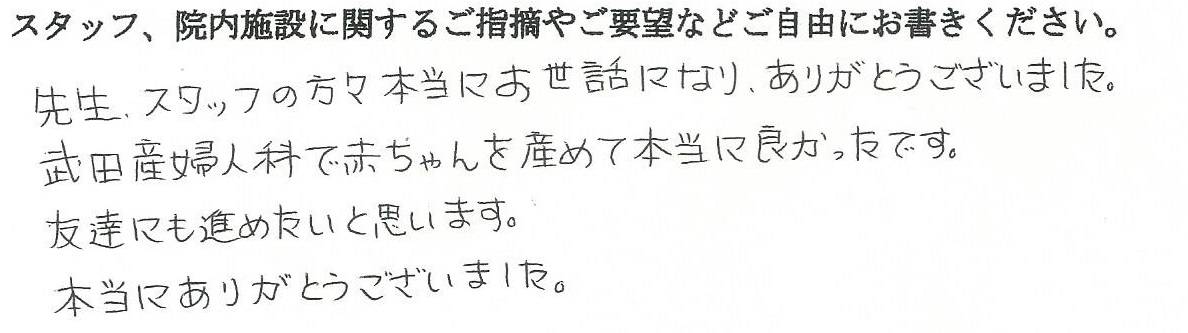 スタッフ、院内施設に関するご指摘やご要望などご自由にお書きください。
先生、スタッフの方々本当にお世話になり、ありがとうございました。
武田産婦人科で赤ちゃんを産めて本当に良かったです。
友達にも進めたいと思います。
本当にありがとうございました。